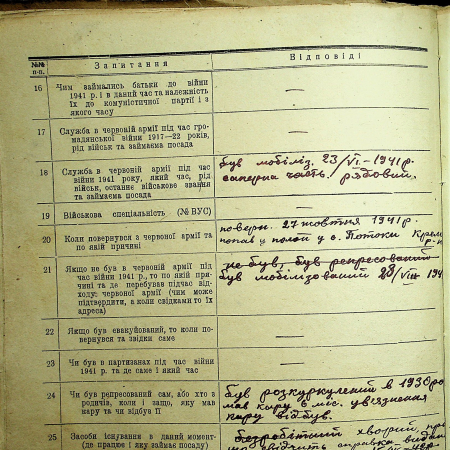 №№ п-п. Запитання Відповіді
16 Чим займались батьки до війни
1941 р. і в даний час та належність
їх до комуністичної партії і з
якого часу
—
17 Служба в червоній армії під час гро-
мадянської війни 1917—22 років,
рід військ та займаєма посада
—
18 Служба в червоній армії під час
війни 1941 року, який час, рід
військ, останнє військове звання
та займаєма посада
був мобіліз. 23/VI - 1941 р.
саперна часть / рядовий.
19 Військова спеціяльність (№ ВУС)
—
20 Коли повернувся з червоної армії та
по якій причині
поверн. 27 жовтня 1941 р.
попав у полон у с. Потоки Крем
р-н
21 Якщо не був в червоній армії під
час війни 1941 р., то по якій при-
чині та де перебував підчас від-
ходу; червоної армії (чим може
підтвердити, а коли свідками то їх
адреса)
не був, був репресований
був мобілізований 28/VIII 194
22 Якщо був евакуйований, то коли по-
вернувся та звідки саме
—
23 Чи був в партизанах під час війни
1941 р. та де саме і який час
—
24 Чи був репресований сам, або хто з
родичів, коли і защо, яку мав
кару та чи відбув її
був розкуркулений в 1930 ро
мав кару 6 міс. ув'язнення
кару відбув.
25 Засоби існування в даний момент-
(де працює і яку займає посаду)
безробітний хворий, пр
що свідчить справка видан